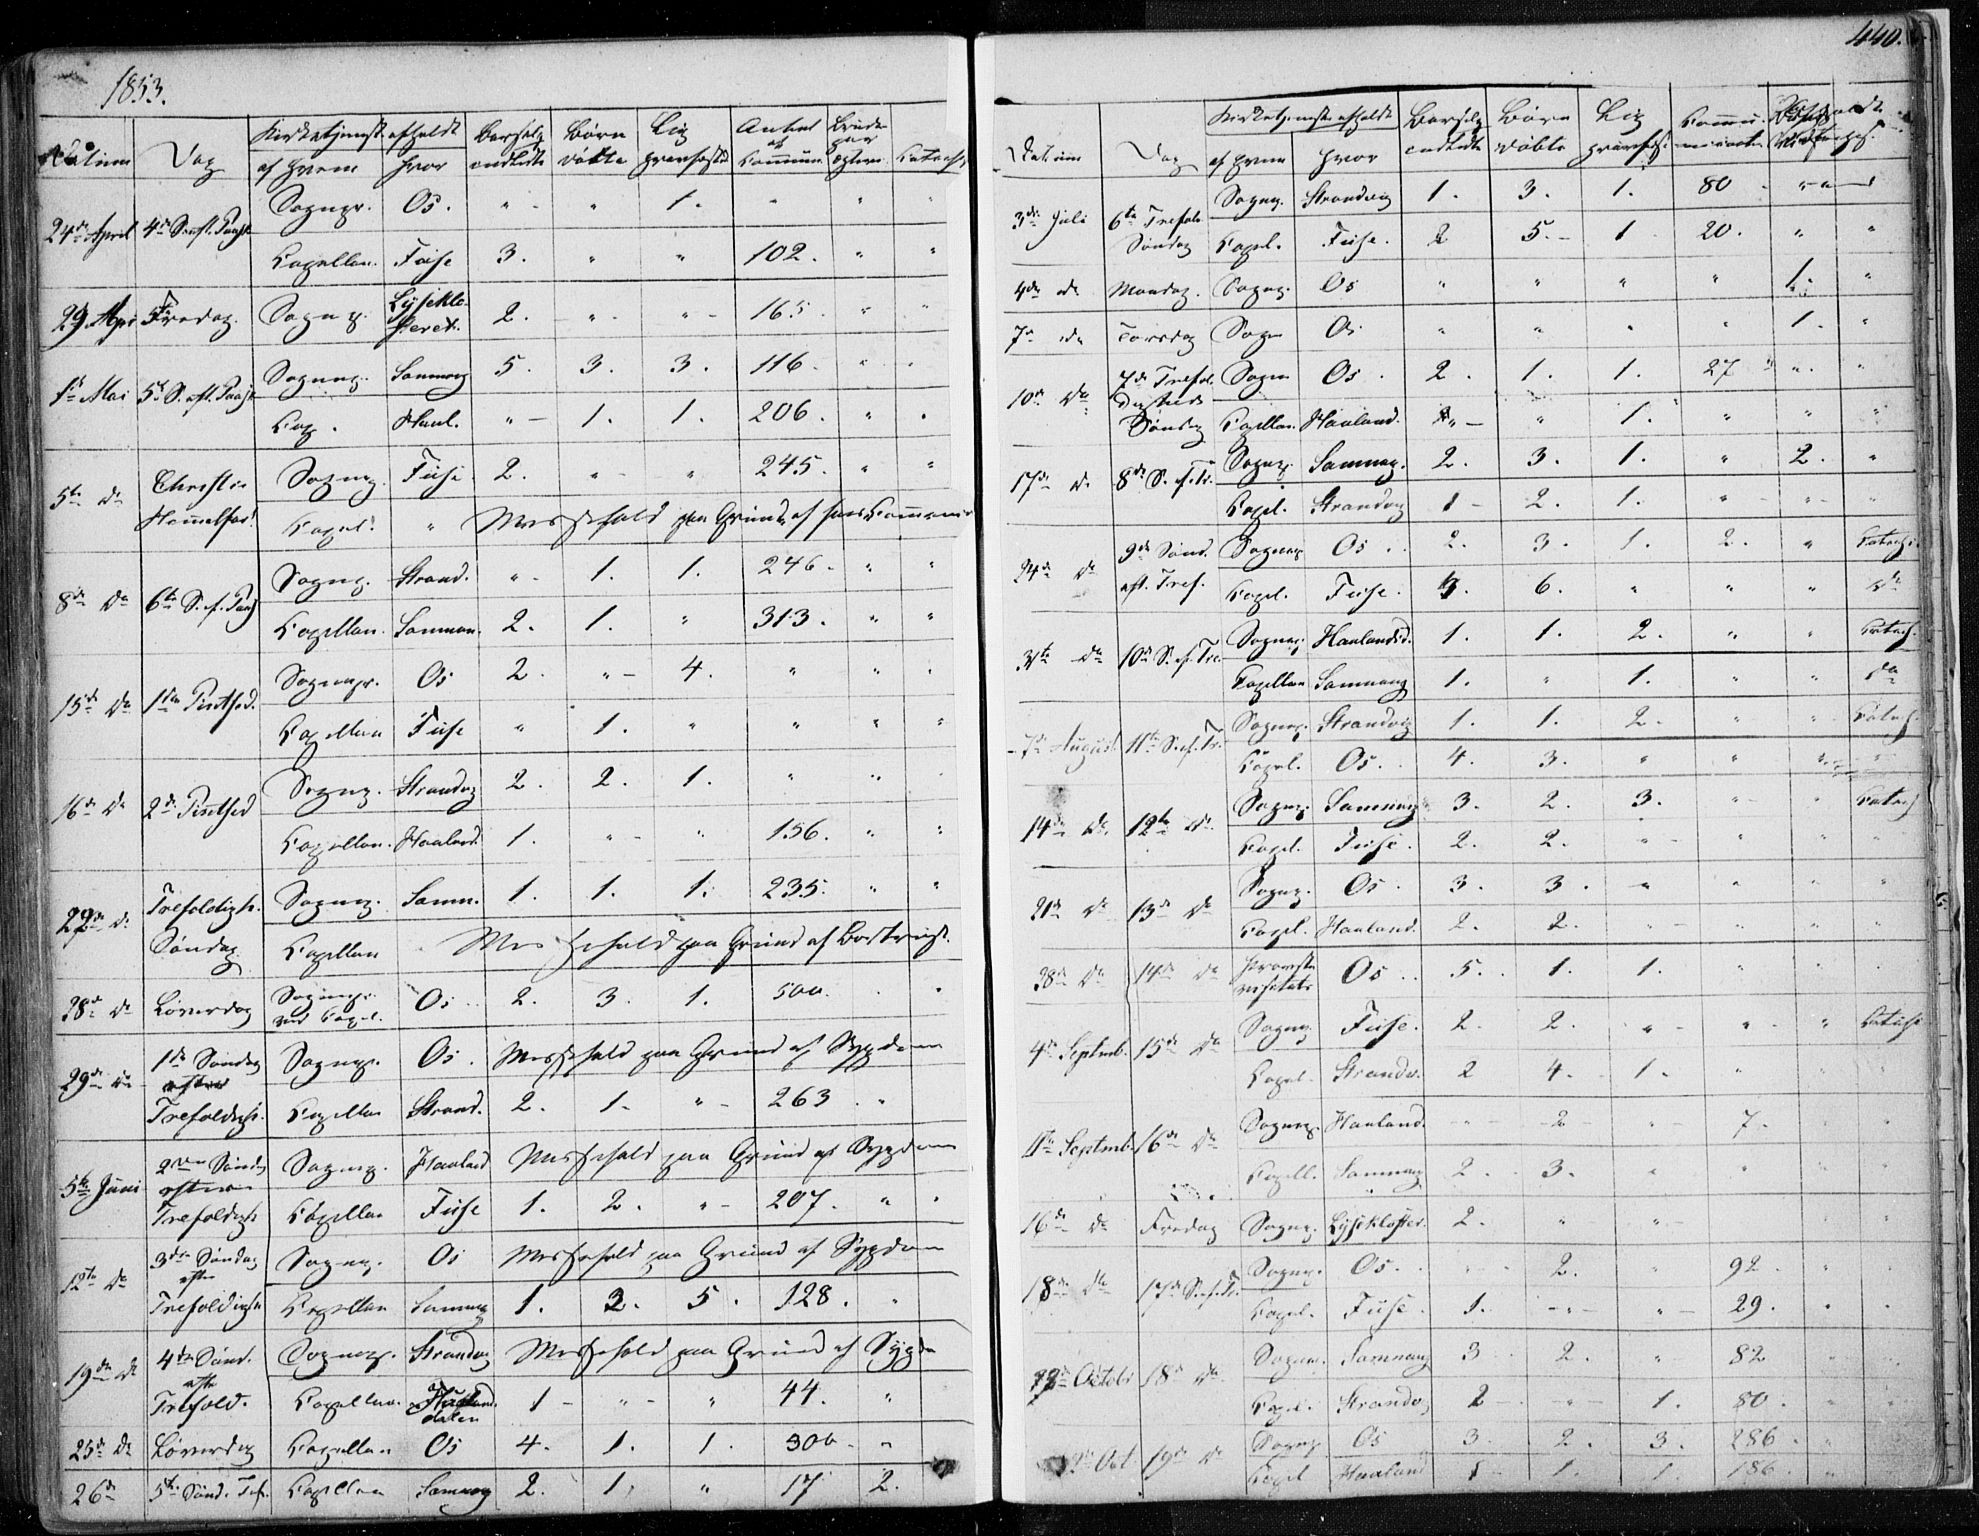 1853.
Datum Dag Kirketjenest. afholdt
af hvem hvor Barselq. indledte Børn døbte Lig Antal af Commun. Brude par Catechis.
24de April 4de S. eft. Paask. Sognepr. Os. " - " 1. " " "
Capellan. Fuse 3. " " 102. " "
29 Apr. Fredag. Sognep. Lyseklosteret. 2. " - " - 165. " "
1ste Mai 5te S. eft. Paask. Sognep. Samnang 5. 3. 3. 116. " "
Cap. Haal. " - 1. 1. 206. " .
5te do Christi Himmelfart Sognep. Fuse 2. " - " 245. " "
Capel. " Messefald paa Grund af
8de do 6te S. e. Paask Sognep. Strand. " - 1. 1. 246. " "
Capellan. Samnan. 2. 1. " 313. " "
15de do 1ste Pintsed. Sognepr. Os 2. " - 4. " " "
Capellan Fuse " 1. " " " "
16de do 2de Pintsed Sognep. Strandvig 2. 2. 1. " "
Capellan. Haaland. 1. " - " 156. " "
22de do Trefoldigh. Søndag Sognep. Samn. 1. 1. 1. 235. " "
Capellan Messefald paa Grund af
28de do Løverdag Sognepr. med Capel. Os 2. 3. 1. 500. . "
29de do 1ste Søndag efter Trefoldigh. Sognepr. Os. Messefald paa Grund af Sygdom
Capellan Strand. 2. 1. " - 263 . "
5te Juni 2den Søndag efter Trefoldigh. Sognep. Haaland Messefald paa Grund af Sygdom
Capellan Fuse 1. 2. " - 207. " .
12te do 3die Søndag efter Trefoldigh Sognep. Os Messefald paa Grund af Sygdom
Capellan Samnang 1. 2. 5. 128. "
19de do 4de Sønd. efter Trefold. Sognep. Strandvig Messefald paa Grund af Sygdo
Capellan. Haalandsdalen 1 - " - " 44. "
25de do Løverdag Capellan Os 4. 1. 1. 300. "
26de 5te Sønd. Tref. Capellan Samnang 2. 1. " 17 2.
440.
Datum Dag Kirketjenest. afholdt
af hvem hvor Barselq. indledte Børn døbte Lig
3die Juli 6te Trefol. Søndag Sognep. Strandvig 1. 3. 1. 80 - " "
Capel. Fuse. 2 5. - 1 20. " "
4de do Mandag. Sognep. Os " " " " 1. "
7de do Torsdag Sogn Os. " " " " 1. "
10de do 7de Trefoldigheds Søndag Sogn Os. 2. 1. 1. 27 " "
Capellan. Haaland. " - " 1. " " "
17de do 8de S. e. Tr. Sognep. Samnang. 2. 3. 1. " 2. "
Capel. Strandvig 1 - 2. 1. " " - "
24de do 9de Sønd. eft. Tref. Sognep Os . 2. 3. 1. 2. " Catech.
Capel. Fuse. 3. 6. " " " do
31te do 10de S. e. Tre. Sognep. Haalandsd. 1. 1. 2. " " Catech.
Capellan Samnang 1. " 1. " " do
7de August 11te S. e. Tr. Sognep. Strandvig 1. 1. 2. " " Catech.
Capel. Os. 4. 3. " " " "
14de do. 12te do. Sognep. Samnang. 3. 2. 3. " - " Catech
Capel. Fuse. 2. 2. " - " " "
21de do 13de do Sognep. Os . 3. 3. " " " "
Capel. Haaland. 2. 2. " - " " "
28de do 14de do Provste visitats Os . 5. 1. 1. " "
4de Septmb. 15de do Sognep. Fuse. 2. 2. " - " - " Catech
Capel. Strandv. 2 4. - 1. " " "
11te Septmb. 16de do Sognep. Haaland. " - 2 - " 7. " "
Capell. Samnang 2. 3. " " " "
16de do Fredag Sognep. Lysekloster. 2. " " - "
18de do 17de S. e. Tr. Sognep. Os. " - 2. " 92. "
Capel. Fuse. 1. - " - " - 29. " "
October 18de do Sognep. Samnang 3 2. " 82
Capel. Strandv. 2 - " - 1. 80. "
2de Oct. 19de do Sognep Os 3. 2. 3. 286. "
Capel Haaland 1 - 1. 1. 186. "